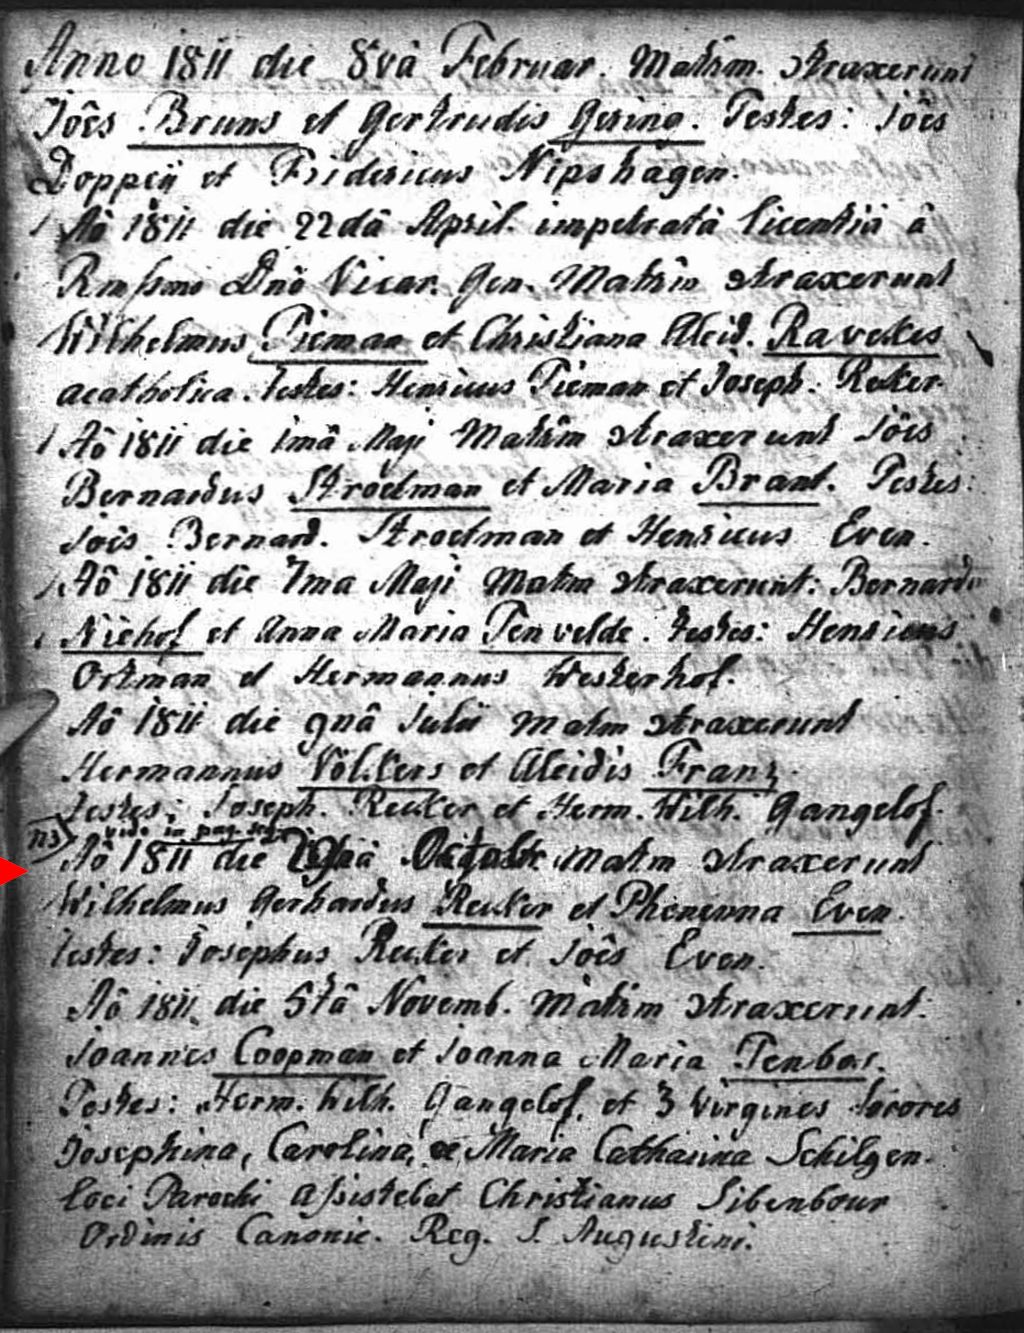 Anno 1811 die 8vâ Februar. Matrim. ctraxerunt
Jôês Bruns et Gertrudis Gesing. Testes: Jôês
Doppeij et Fridericus Nipshagen.
Aô 1811 die 22dâ April. impetratâ licentiâ â
Rmssmo Dnô Vicar. Gen. Matrîm ctraxerunt
Wilhelmus Tieman et Christiana Aleid. Ravekes
acatholica. Testes: Henricus Tieman et Joseph. Reker
Aô 1811 die 1mâ Maji Matrîm ctraxerunt Jôês
Bernardus Stroetman et Maria Brant. Testes:
Joês Bernard. Stroetman et Henricus Even.
Aô 1811 die 7ma Maji Matrm ctraxerunt: Bernardus
Niehof et Anna Maria Tenvelde. Testes: Henricus
Ortman et Hermannus Westerhof.
Aô 1811 die 9nâ Julii Matrm ctraxerunt
Hermannus Volkers et Aleidis Franz.
Testes: Joseph. Reuker et Herm. Wilh. Gangelof.
ns vide in pag.
Aô 1811 die Octobr Matrm ctraxerunt
Wilhelmus Gerhardus Reuker et Phenenna Even.
Testes: Josephus Reuker et Joês Even.
Aô 1811 die 5tâ Novemb. Matrîm ctraxerunt.
Joannes Coopman et Joanna Maria Tenbos.
Testes: Herm. Wilh. Gangelof, et 3 Virgines Sorores
Josephina, Carolina, et Maria Catharina Schilgen.
Loci Parochi Assistebat Christianus Sibenbour
Ordinis Canonic. Reg. S. Augustini.